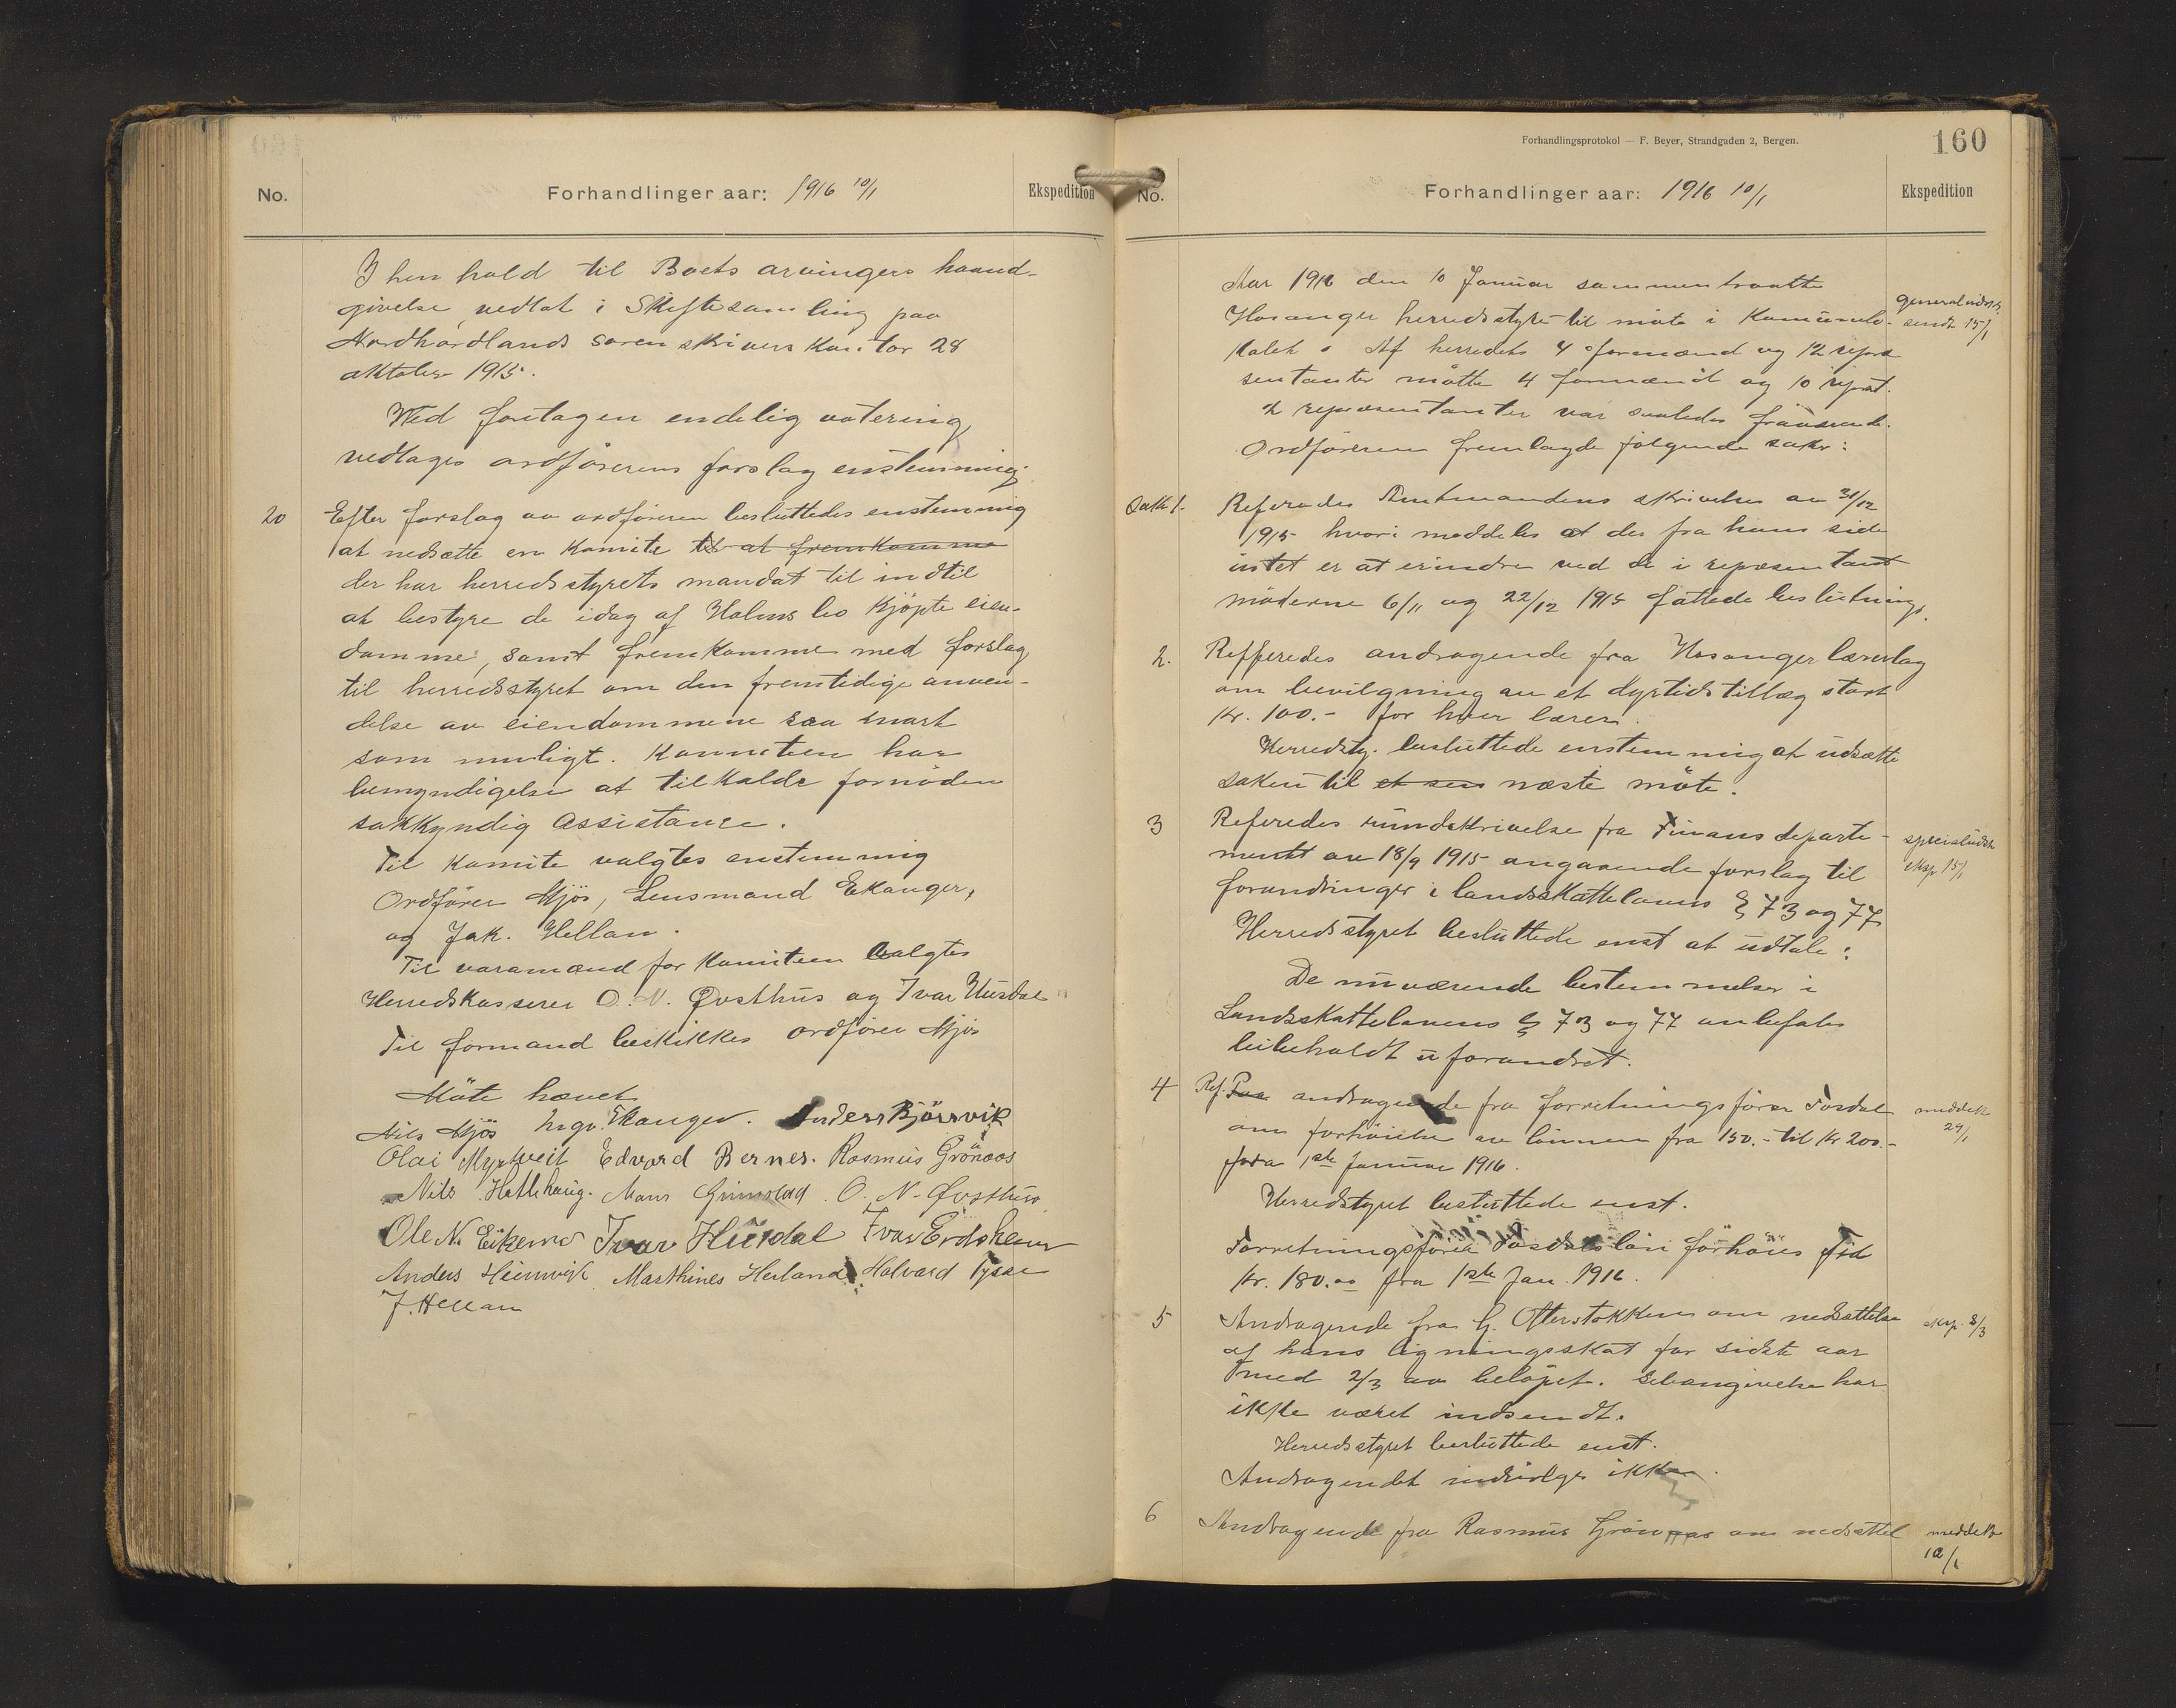 No.
Forhandlinger aar: 1916 10/1
Ekspedition
I henhold til Boets arvingers haand-
givelse, vedtat i Skiftesamling paa
Nordhordlands sorenskrivers Kontor 28
oktober 1915.
Ved foretagen endelig votering
vedtages ordførerens forslag enstemmig.
20 Efter forslag av ordføreren besluttedes enstemmig
at nedsætte en Komite til at fremkomme
der har herredsstyrets mandat til indtil
at bestyre de idag af Holms bo Kjøpte eien-
domme, samt fremkomme med forslag
til herredsstyret om den fremtidige anven-
delse av eiendommene saa snart
som muligt. Komiteen har
bemyndigelse at tilkalde fornøden
sakkyndig assistance.
Til Komite valgtes enstemmig
Ordfører Mjøs, Lensmand Ekanger,
og Jak. Hellan.
Til varamænd for Komiteen valgtes
Herredskasserer O. N. Øvsthus og Ivar Husdal
Til formand beskikkes ordfører Mjøs
Møte hævet
Nils Mjös Ingv. Ekanger. Anders Björsvik
Olai Myrtveit Edvard Bernes. Rasmus Grönaas
Nils Hatlhaug. Mons Grimstad O. N. Øvsthus
Ole N. Eikemo Ivar Husdal Ivar Eidsheim
Anders Heimvik Marthines Herland Halvard Tysse
J. Hellan
Forhandlingsprotokol — F. Beyer, Strandgaden 2, Bergen.
160
No.
Forhandlinger aar: 1916 10/1
Ekspedition
Aar 1916 den 10 Januar sammentraatte
Hosanger herredsstyre til møte i Kommunelo-
kalet. Af herredets 4 formænd og 12 repræ
sentanter møtte 4 formænd og 10 repræst.
2 repræsentanter var saaledes fraværende.
Ordføreren fremlagde følgende saker:
generaludsk.
sendt 15/1
Sak 1. Referedes Amtmandens skrivelse av 31/12
1915 hvori meddeles at der fra hans side
intet er at erindre ved de i repræsentant
møderne 6/11 og 22/12 1915 fattede beslutning.
2. Refferedes andragende fra Hosanger lærerlag
om bevilgning av et dyrtidstillæg stort
Kr. 100.- for hver lærer.
Herredsty. besluttede enstemmig at udsætte
saken til et sen næste møte.
3 Referedes rundskrivelse fra Finansdeparte-
mentet av 18/9 1915 angaaende forslag til
forandringer i landsskattelovens § 73 og 77
Herredsstyret besluttede enst at udtale:
De nuværende bestemmelser i
Landsskattelovens § 73 og 77 anbefales
bibeholdt uforandret.
specialudsk
eksp 15/1
4 Ref. Paa andragende fra forretningsfører Fosdal
om forhøielse av lønnen fra 150.- til Kr 200.-
fra 1ste Januar 1916.
Herredstyret besluttede enst.
Forretningsfører Fosdals løn forhøies til
Kr. 180.00 fra 1ste Jan. 1916.
meddelt
29/1
5 Andragende fra G. Ofterstokken om nedsættelse
af hans ligningsskat for sidste aar
med 2/3 av beløpet. Selvangivelse har
ikke været indsendt.
Herredsstyret besluttede enst.
Andragendet indvilges ikke.
eksp. 8/3
6 Andragende fra Rasmus Grönaas om nedsættel
meddelt